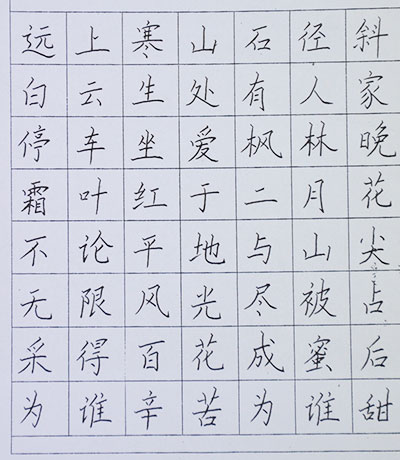 远上寒山石径斜
白云生处有人家
停车坐爱枫林晚
霜叶红于二月花
不论平地与山尖
无限风光尽被占
采得百花成蜜后
为谁辛苦为谁甜